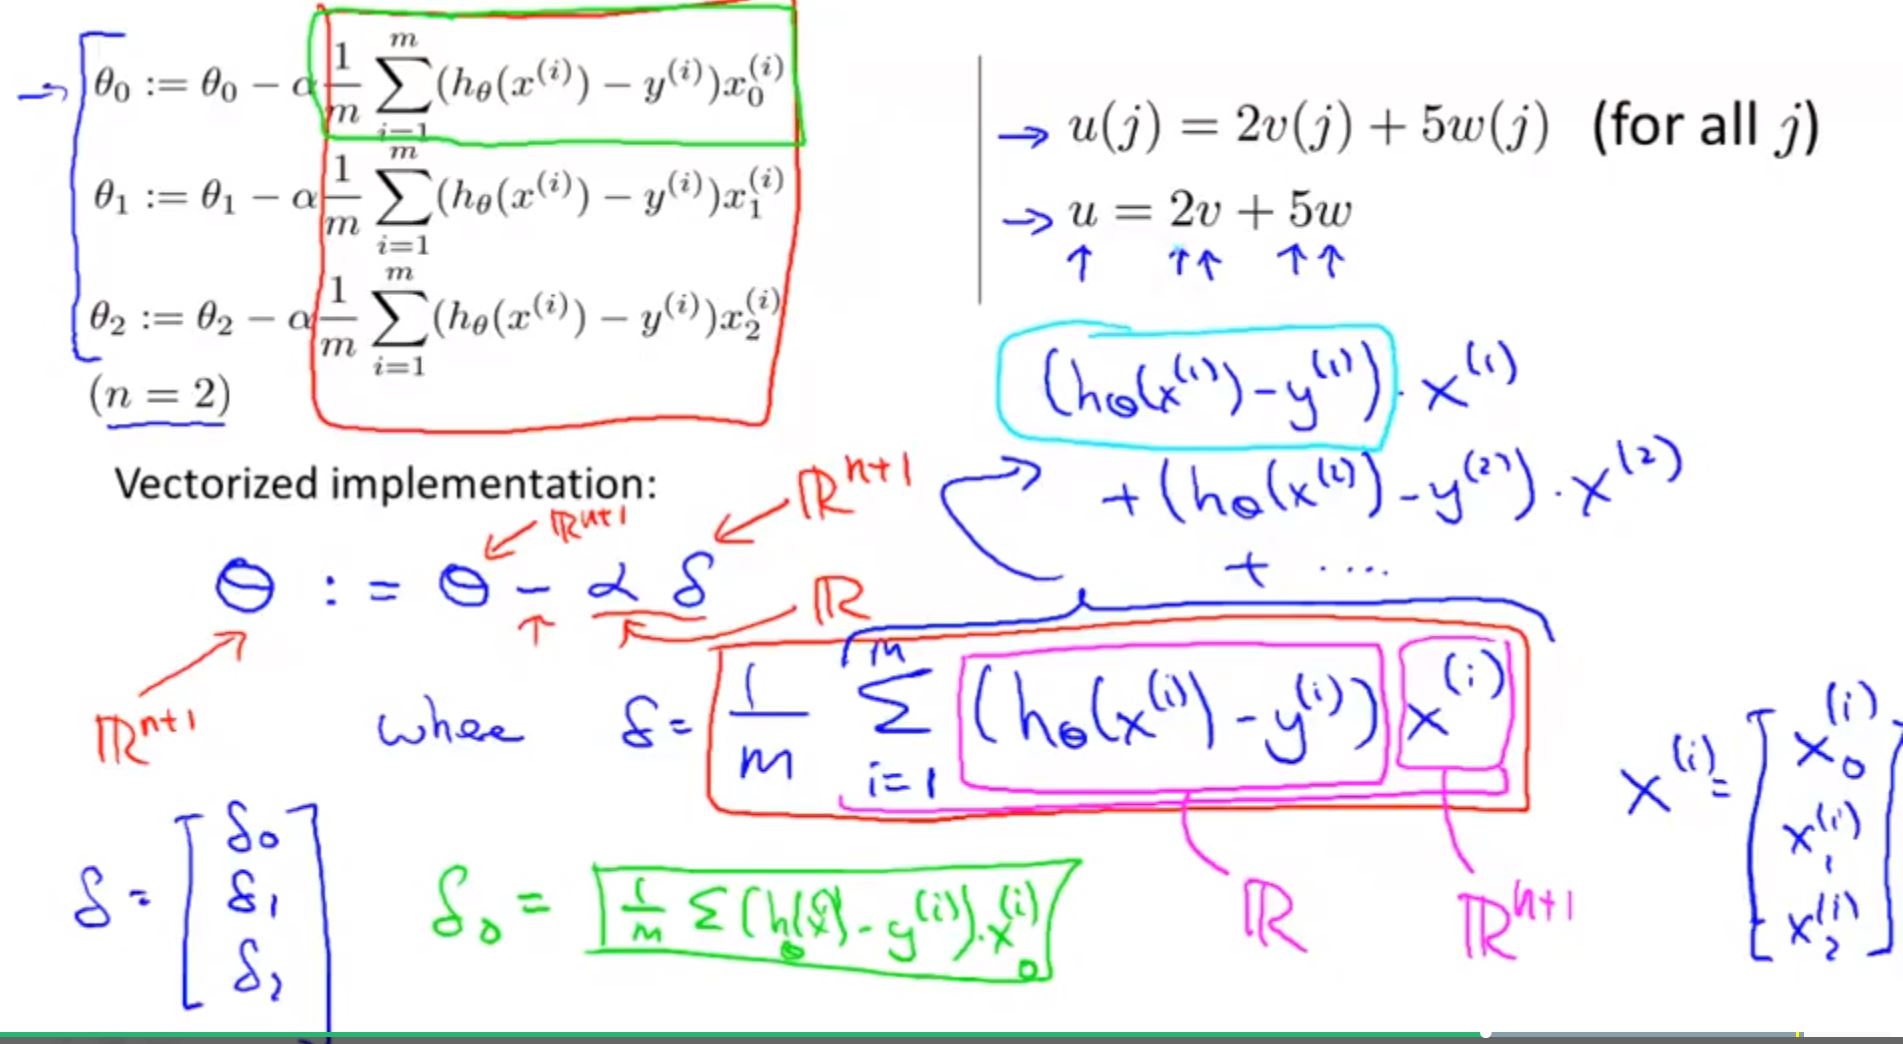 θ₀ := θ₀ − α 1/m ∑ᵢ₌₁ᵐ (h_θ(x⁽ⁱ⁾) − y⁽ⁱ⁾)x₀⁽ⁱ⁾
θ₁ := θ₁ − α 1/m ∑ᵢ₌₁ᵐ (h_θ(x⁽ⁱ⁾) − y⁽ⁱ⁾)x₁⁽ⁱ⁾
θ₂ := θ₂ − α 1/m ∑ᵢ₌₁ᵐ (h_θ(x⁽ⁱ⁾) − y⁽ⁱ⁾)x₂⁽ⁱ⁾
(n = 2)
→ u(j) = 2v(j) + 5w(j) (for all j)
→ u = 2v + 5w
(h_θ(x⁽¹⁾) − y⁽¹⁾) · x⁽¹⁾
+ (h_θ(x⁽²⁾) − y⁽²⁾) · x⁽²⁾
+ ....
Vectorized implementation:
ℝⁿ⁺¹
ℝⁿ⁺¹
θ := θ − α δ
ℝ
ℝⁿ⁺¹
where δ = 1/m ∑ᵢ₌₁ᵐ (h_θ(x⁽ⁱ⁾) − y⁽ⁱ⁾) x⁽ⁱ⁾
ℝ
ℝⁿ⁺¹
x⁽ⁱ⁾ = [x₀⁽ⁱ⁾
x₁⁽ⁱ⁾
x₂⁽ⁱ⁾]
δ = [δ₀
δ₁
δ₂]
δ₀ = 1/m Σ (h_θ(x⁽ⁱ⁾) − y⁽ⁱ⁾) · x₀⁽ⁱ⁾